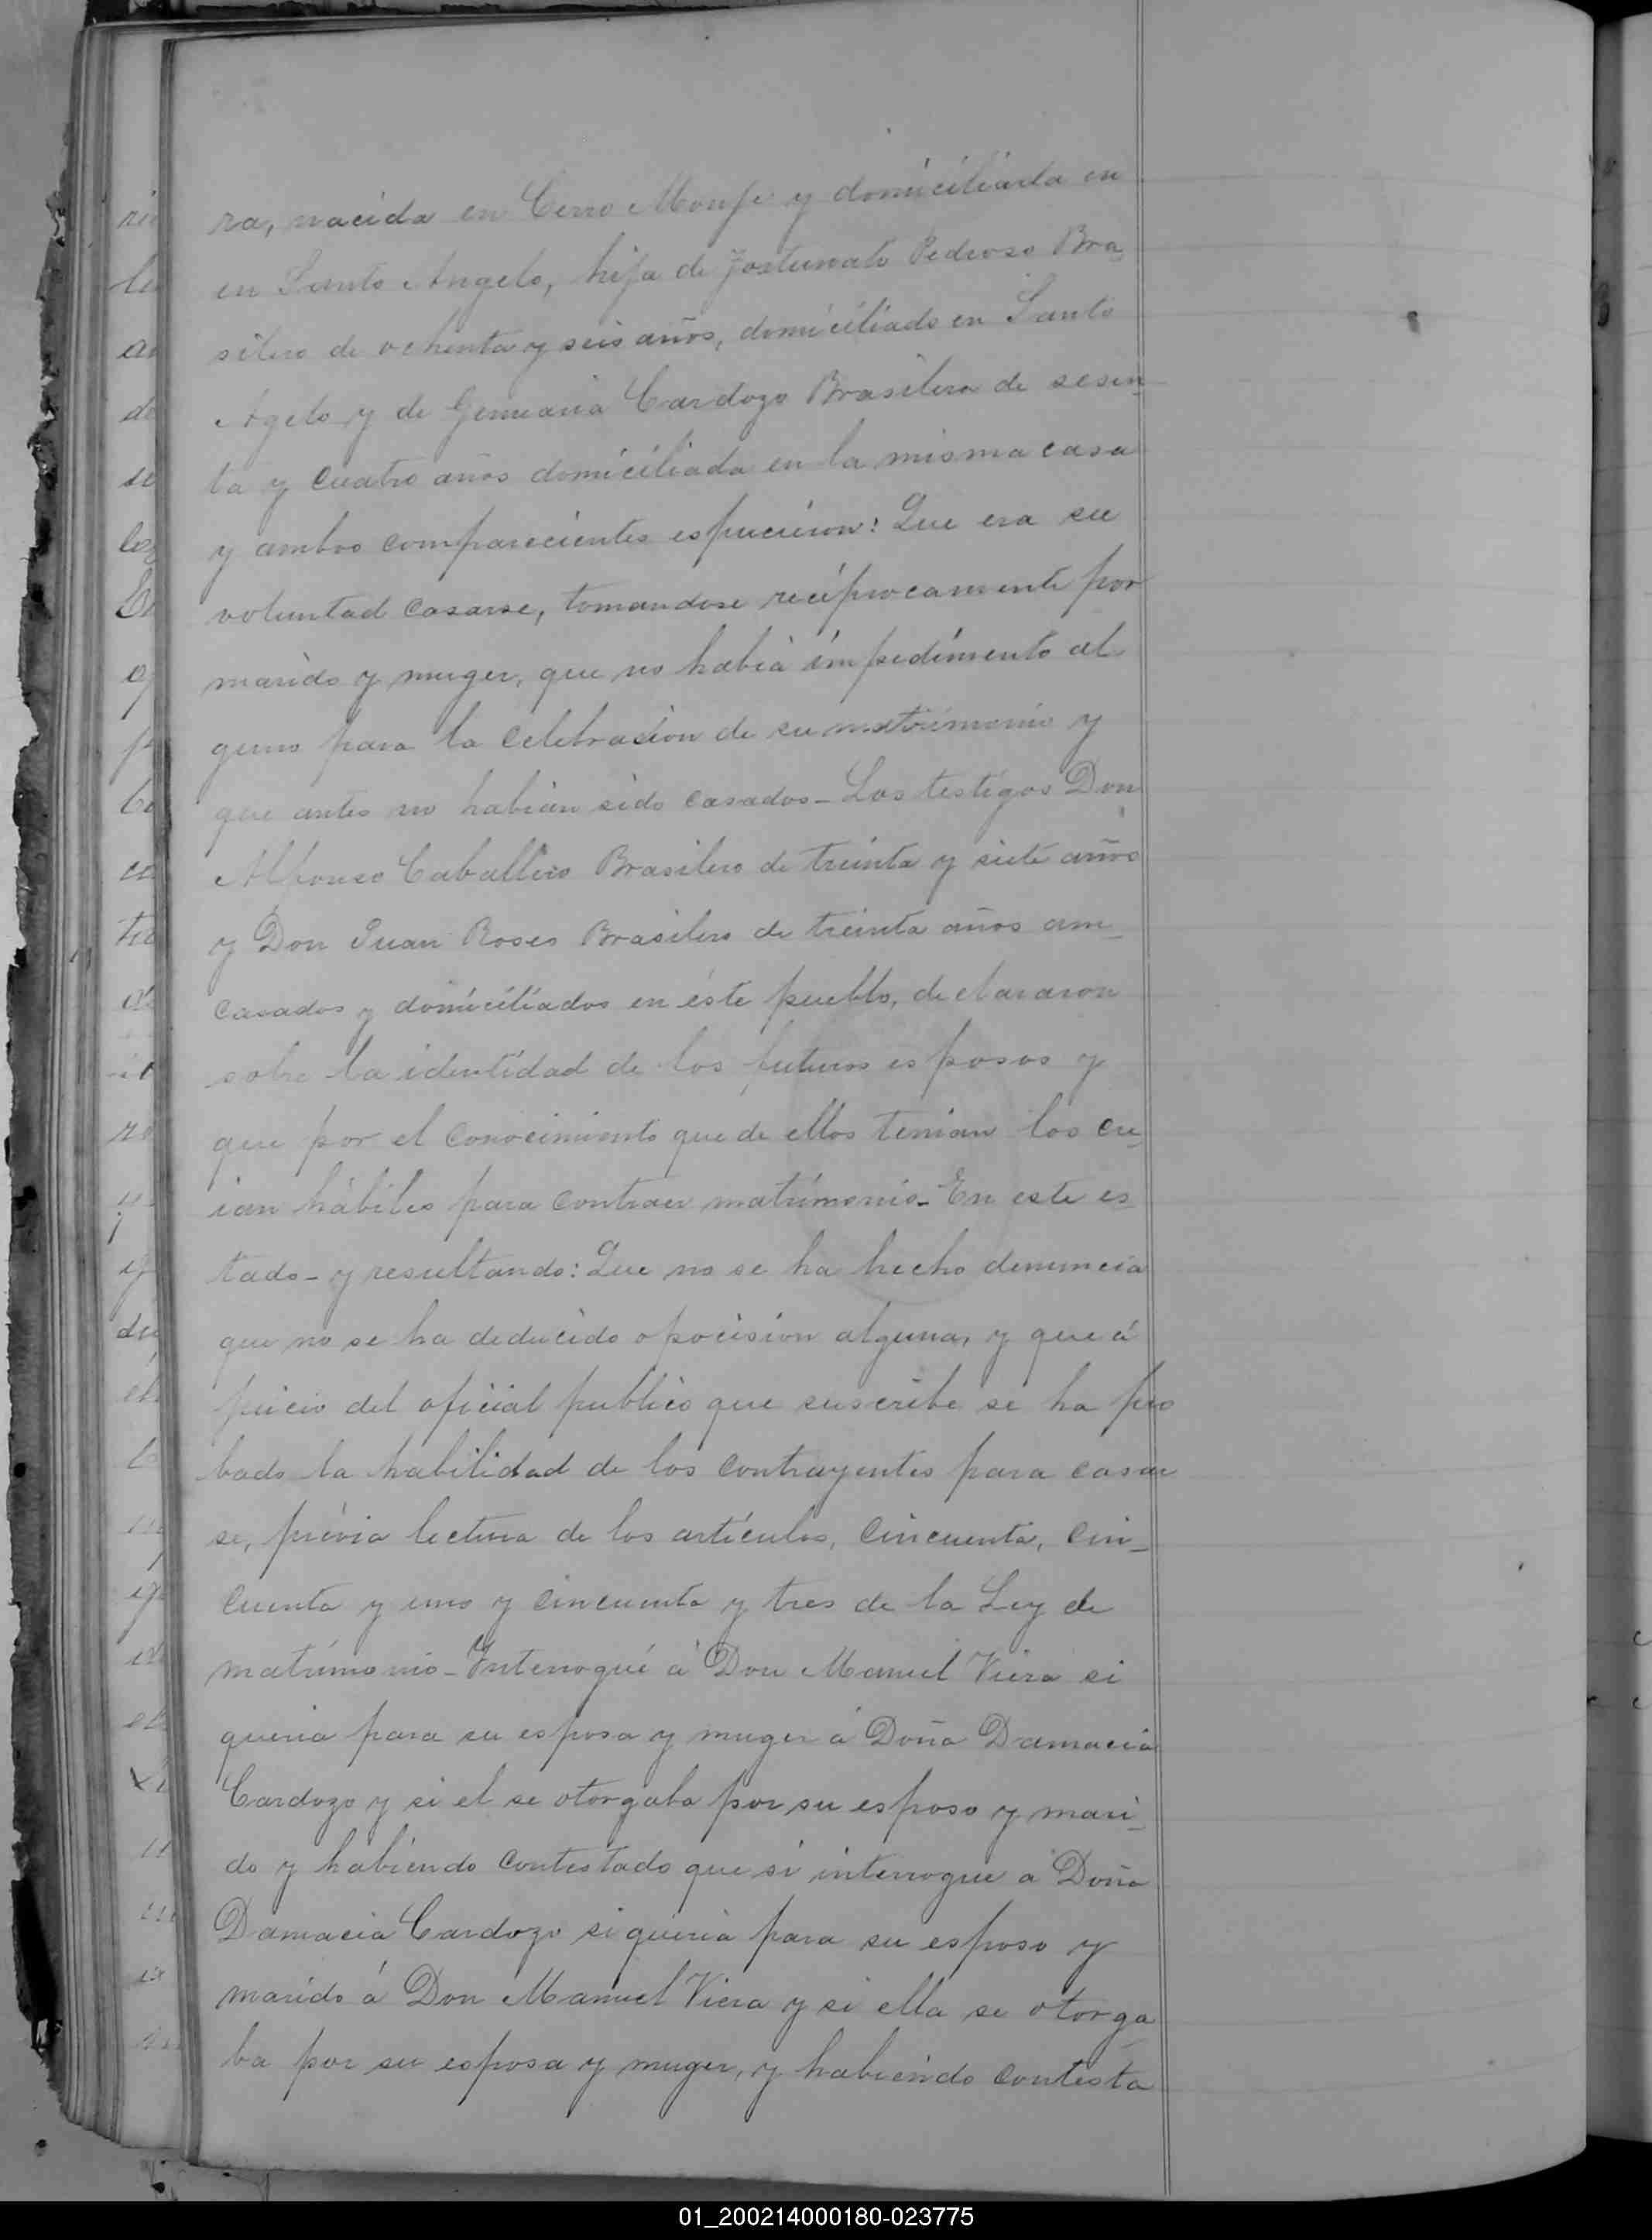 ra, nacida en Cerro Monfe y domiciliada en
en Santo Angelo, hija de Fortunato Pedroso Bra-
silero de ochenta y seis años, domiciliado en Santo
Agelo y de Genuaria Cardozo Brasilera de sesen-
ta y cuatro años domiciliada en la misma casa
y ambos comparecientes espucieron: Que era su
voluntad casarse, tomandose reciprocamente por
marido y muger, que no habia impedimento al
guno para la celebracion de su matrimonio y
que antes no habian sido casados - Los testigos Don
Alfonso Caballero Brasilero de treinta y siete años
y Don Juan Roses Brasilero de treinta años am-
casados y domiciliados en éste pueblo, declararon
sobre la identidad de los futuros esposos y
que por el conocimiento que de ellos tenian los cre-
ian hábiles para contraer matrimonio - En este es
tado - y resultando: Que no se ha hecho denuncia
que no se ha deducido opocision alguna, y que á
juicio del oficial publico que suscribe se ha pro
bado la habilidad de los contrayentes para casar
se, prévia lectura de los artículos, cincuenta, cin-
cuenta y uno y cincuenta y tres de la Ley de
matrimonio - Interrogué á Don Manuel Viera si
queria para su esposa y muger á Doña Damacia
Cardozo y si el se otorgaba por su esposo y mari-
do y habiendo contestado que si interrogue á Doña
Damacia Cardozo si queria para su esposo y
marido á Don Manuel Viera y si ella se otorga
ba por su esposa y muger, y habiendo contesta
01_200214000180-023775